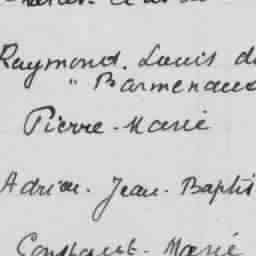 Raymond. Louis d
" Barmenaud
Pierre. Marie
Adrien. Jean. Baptis
Constant. Marie